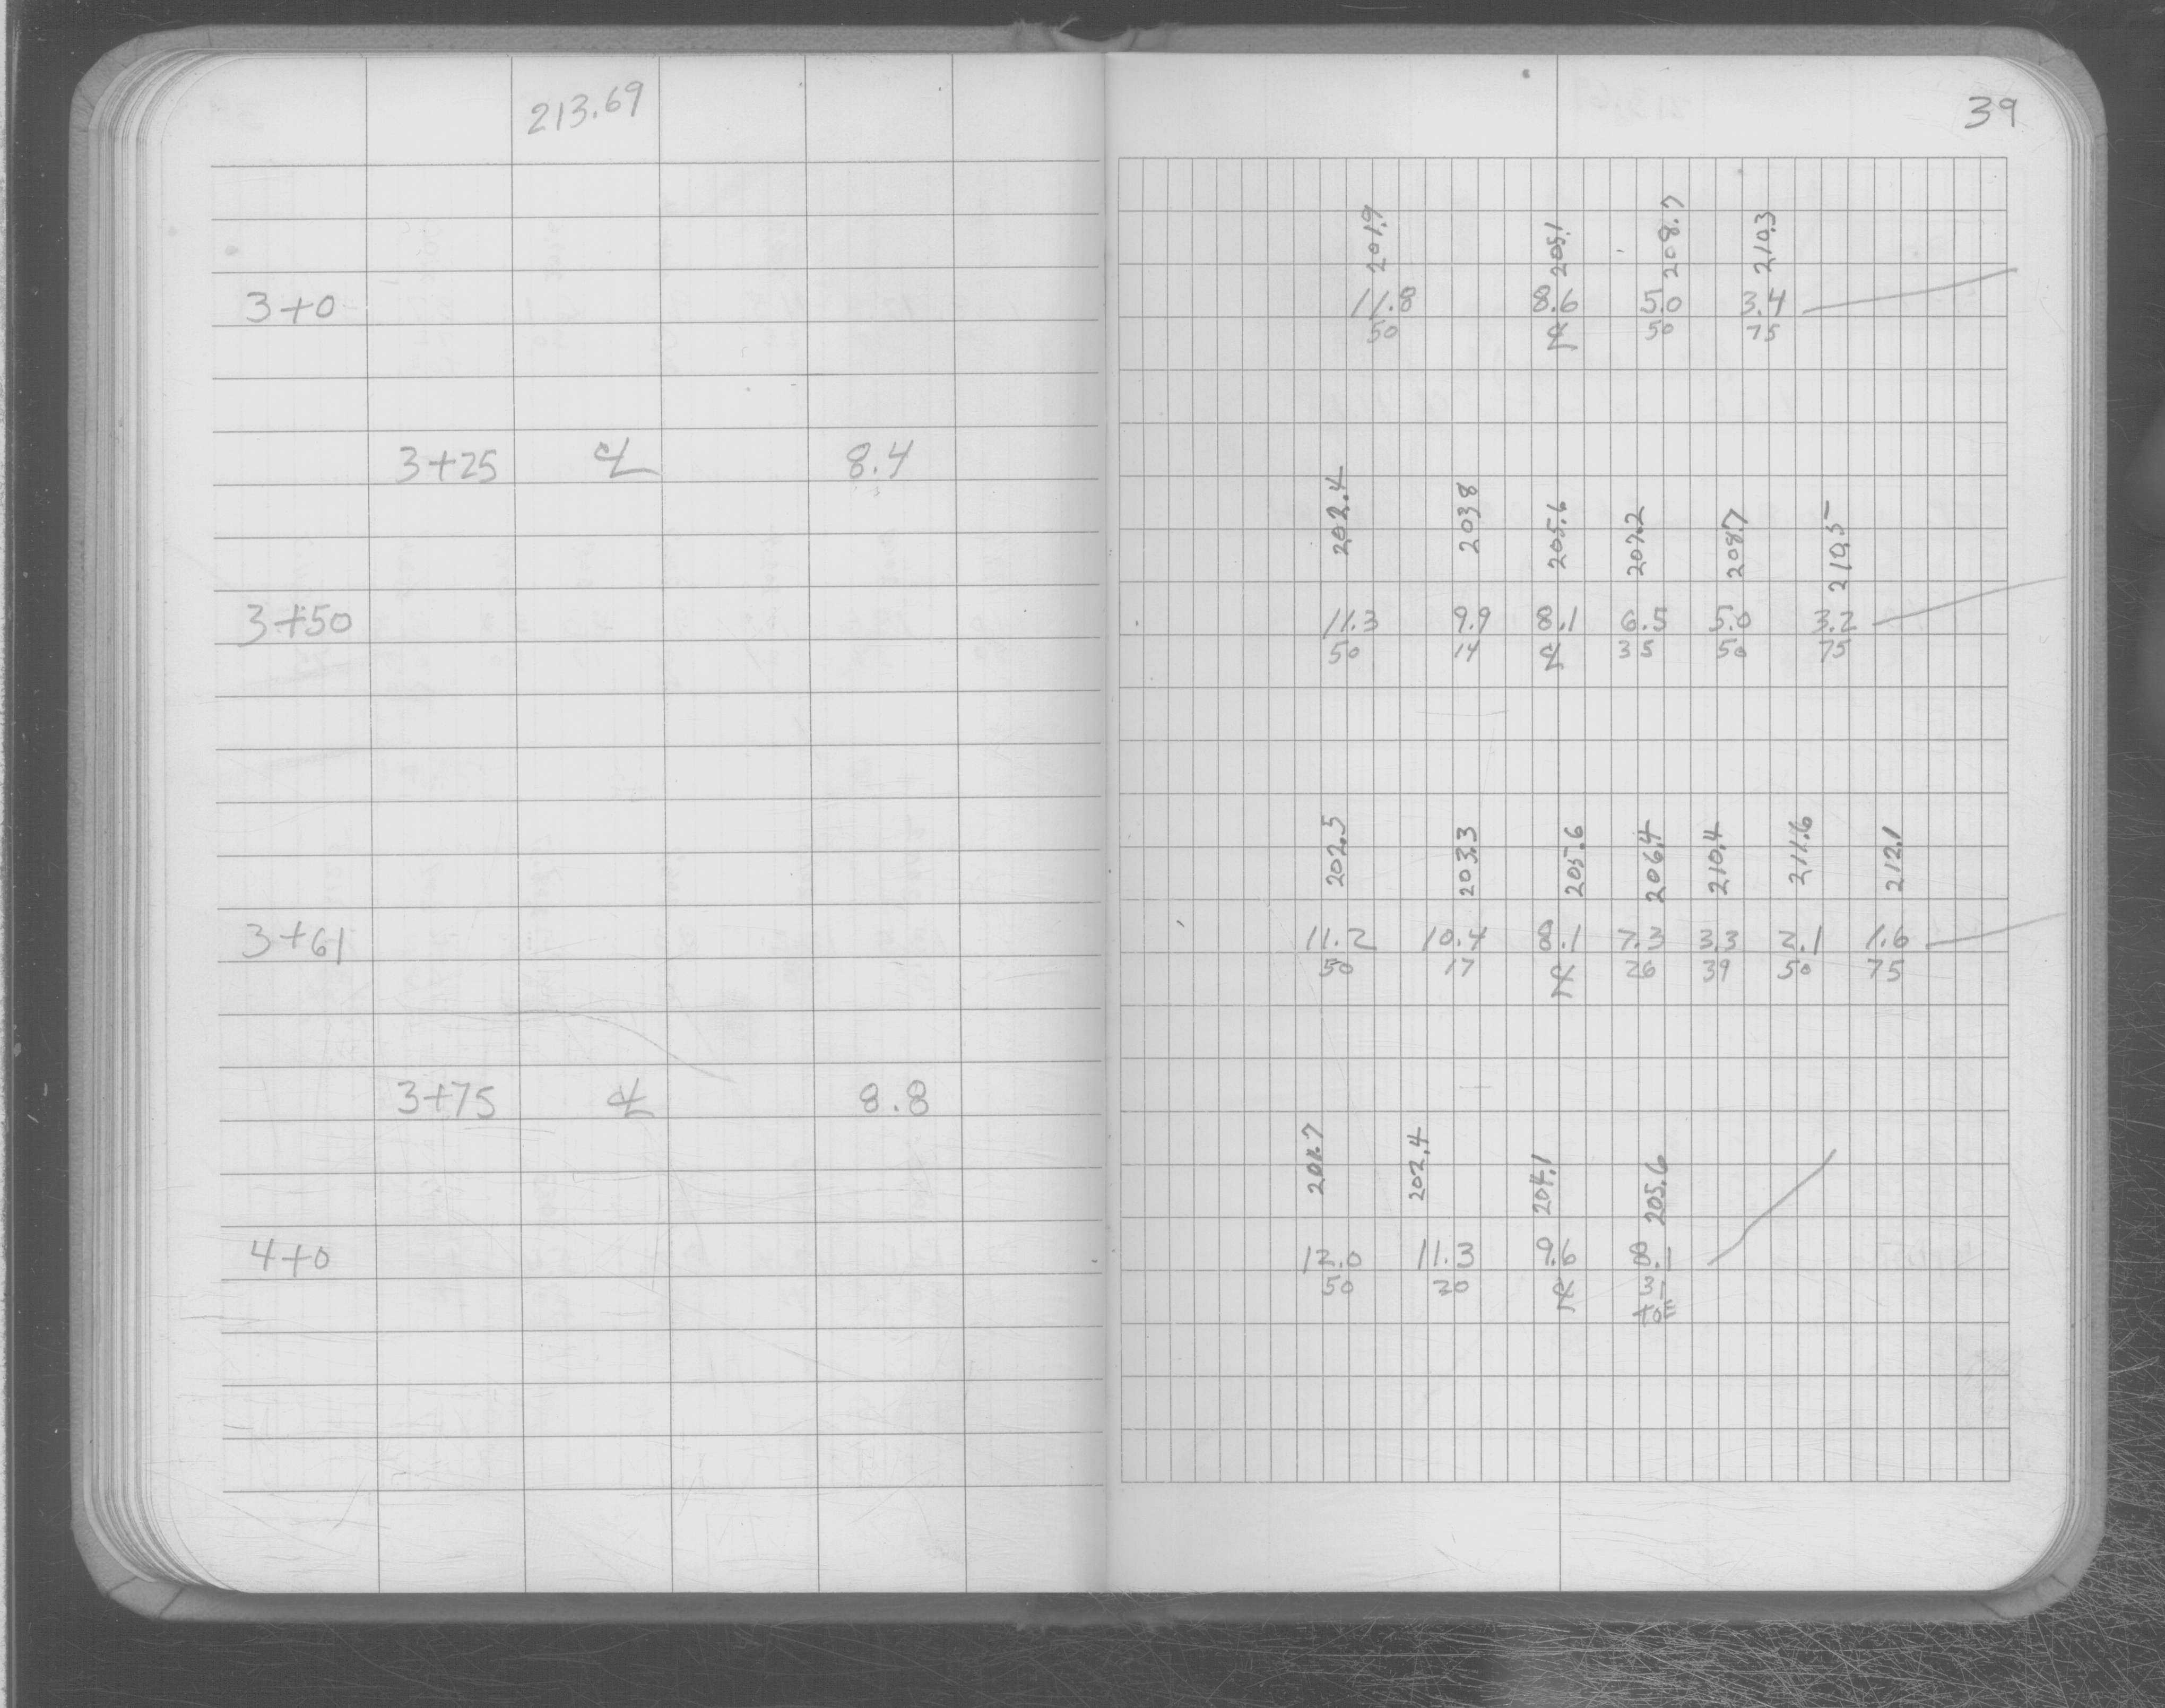 213.69
39
201.9 205.1 208.7 210.3
3+0 11.8 8.6 5.0 3.4
50 ℄ 50 75
3+25 ℄ 8.4
202.4 203.8 205.6 207.2 208.7 210.5
3+50 11.3 9.9 8.1 6.5 5.0 3.2
50 14 ℄ 35 50 75
202.5 203.3 205.6 206.4 210.4 211.6 212.1
3+61 11.2 10.4 8.1 7.3 3.3 2.1 1.6
50 17 ℄ 26 39 50 75
3+75 ℄ 8.8
201.7 202.4 204.1 205.6
4+0 12.0 11.3 9.6 8.1
50 20 ℄
TOE